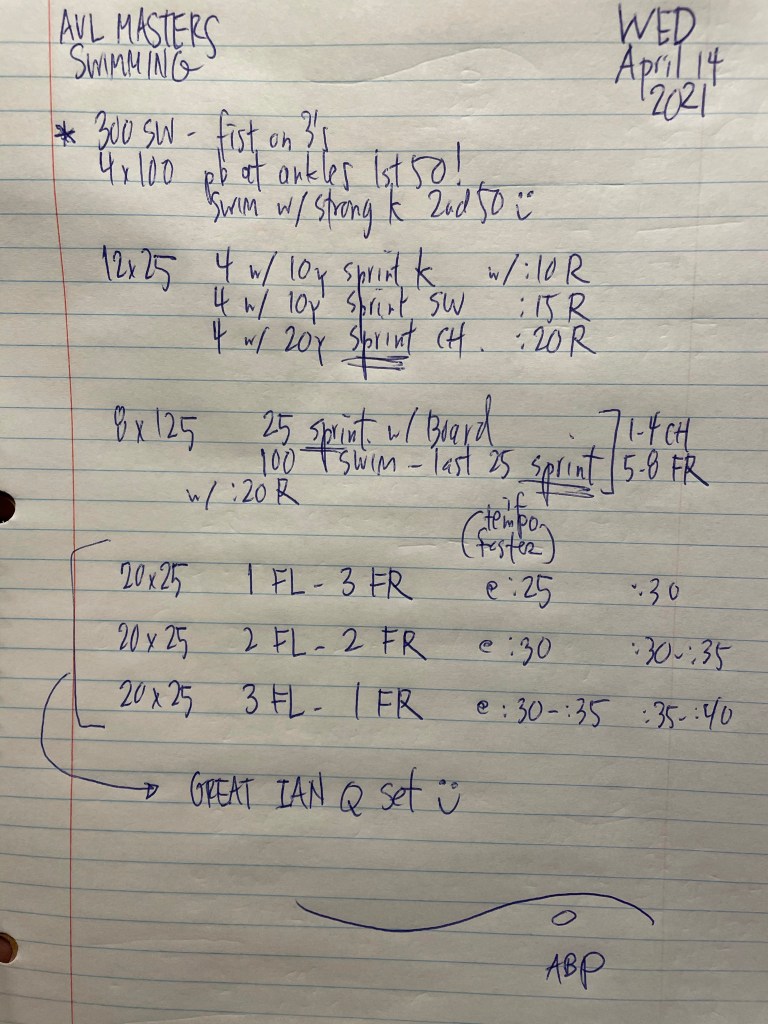 AVL MASTERS
SWIMMING
WED
April 14
2021
* 300 SW - fist on 3's
4x100 pb at ankles 1st 50!
swim w/ strong k 2nd 50 :)
12x25 4 w/ 10y sprint k w/ :10 R
4 w/ 10y sprint SW :15 R
4 w/ 20y sprint CH. :20 R
8 x 125 25 sprint w/ Board 1-4 CH
100 swim - last 25 sprint 5-8 FR
w/ :20 R
(if
tempo
faster)
20x25 1 FL - 3 FR @ :25 :30
20x25 2 FL - 2 FR @ :30 :30-:35
20x25 3 FL - 1 FR @ :30-:35 :35-:40
GREAT IAN Q set :)
ABP